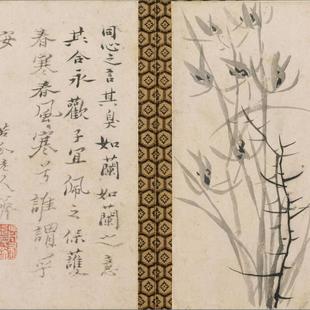 同心之言其臭如蘭如蘭之意
其合永歡子宜佩之保護
春寒春風寒兮誰謂予
安
苦瓜老人濟